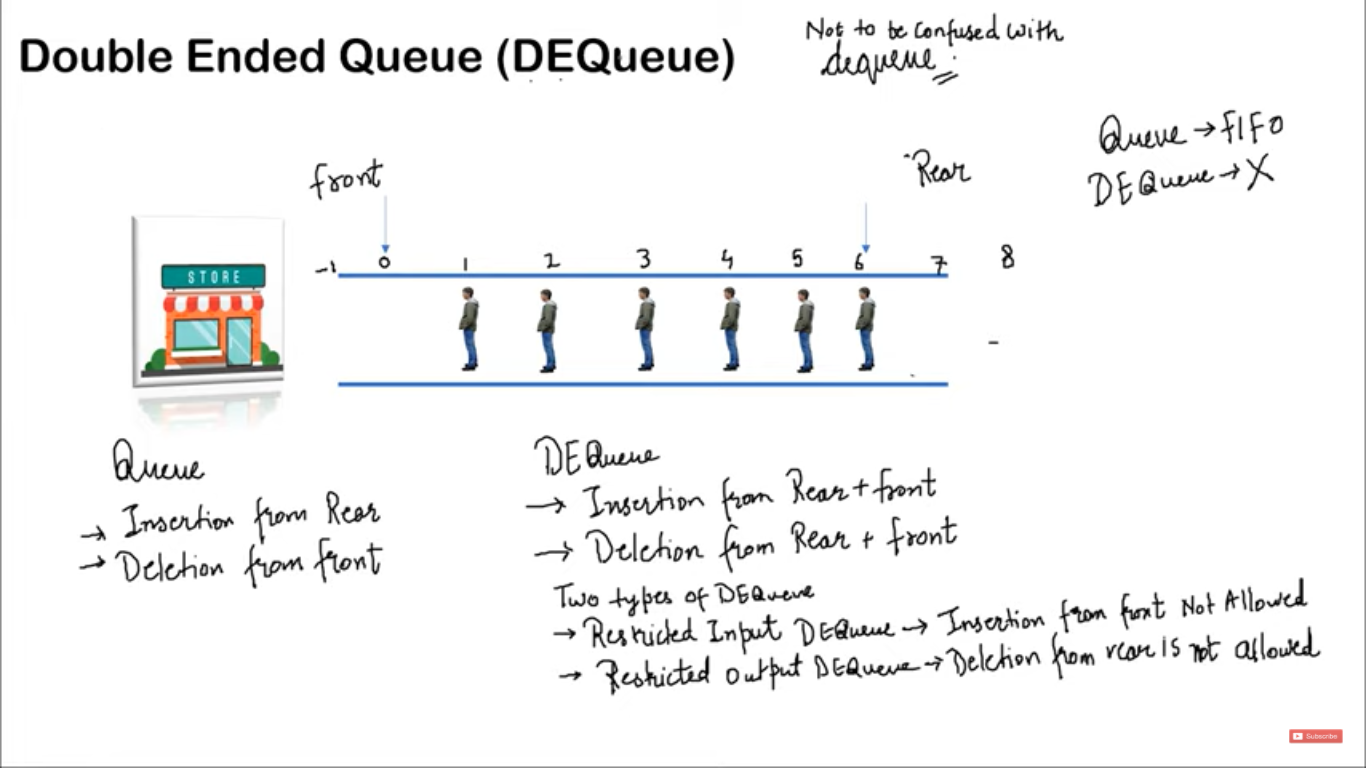 Double Ended Queue (DEQueue)
Not to be confused with
dequeue
Queue → FIFO
DEQueue → X
front
Rear
-1 0 1 2 3 4 5 6 7 8
STORE
Queue
→ Insertion from Rear
→ Deletion from front
DEQueue
→ Insertion from Rear + front
→ Deletion from Rear + front
Two types of DEQueue
→ Restricted Input DEQueue → Insertion from front Not Allowed
→ Restricted output DEQueue → Deletion from rear is not allowed
Subscribe